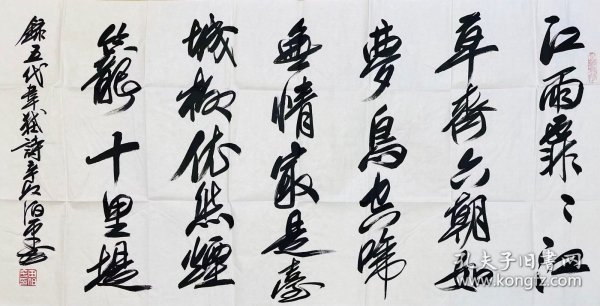 江雨霏〻江
草齊六朝如
夢鳥空啼
無情最是臺
城柳依然煙
籠十里堤
錄五代韋莊詩辛卯
孔夫子旧书网